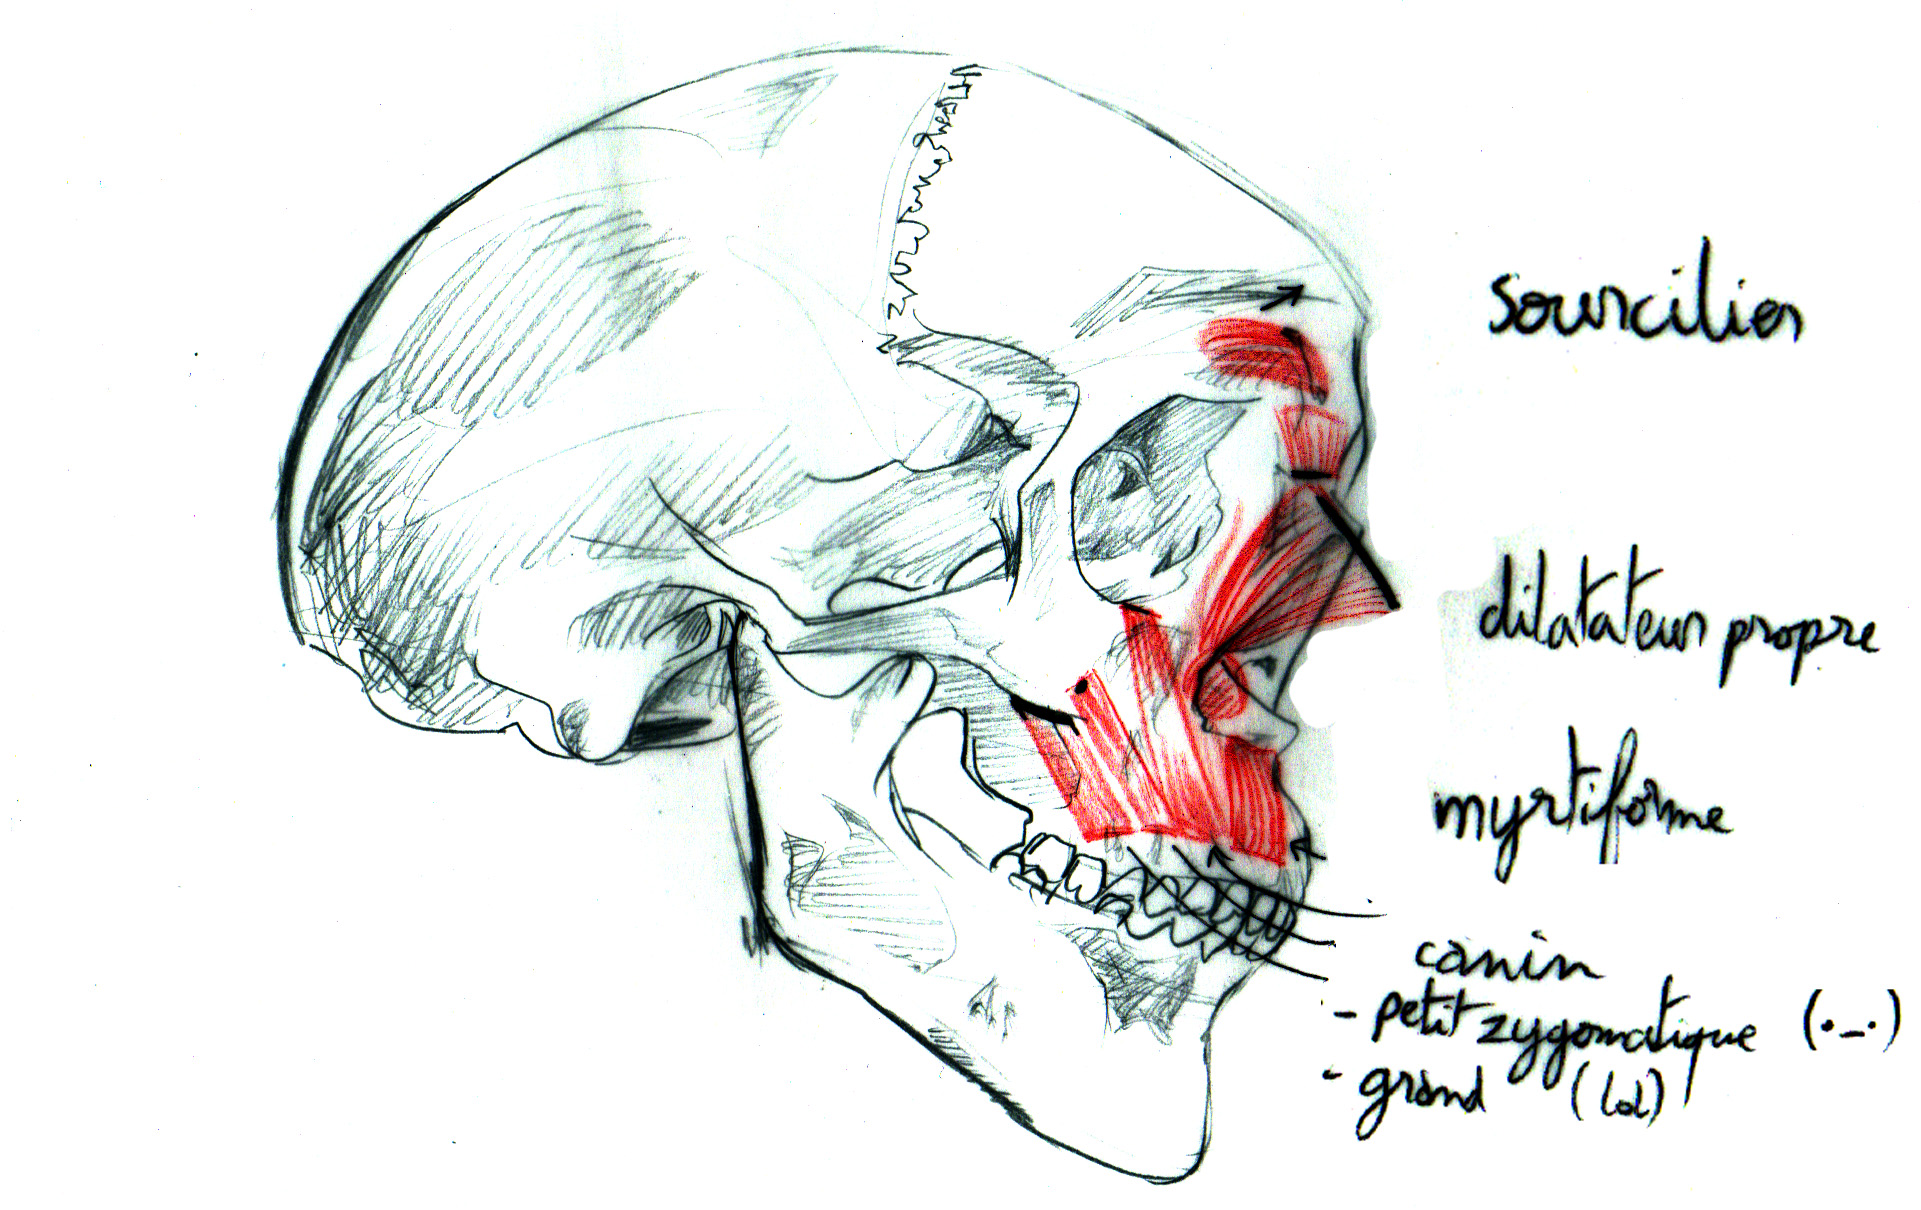 sourcilier
dilatateur propre
myrtiforme
canin
- petit zygomatique (·_·)
- grand (lol)